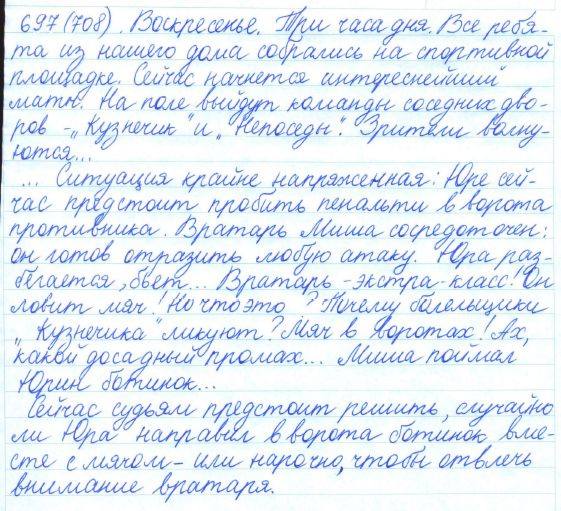 697 (708). Воскресенье. Три часа дня. Все ребя-
та из нашего дома собрались на спортивной
площадке. Сейчас начнется интереснейший
матч. На поле выйдут команды соседних дво-
ров - „Кузнечик" и „Непоседы". Зрители волну-
ются...
... Ситуация крайне напряженная: Юре сей-
час предстоит пробить пенальти в ворота
противника. Вратарь Миша сосредоточен:
он готов отразить любую атаку. Юра раз-
бегается, бьет... Вратарь - экстра-класс! Он
ловит мяч! Но что это? Почему болельщики
„Кузнечика" ликуют? Мяч в воротах! Ах,
какой досадный промах... Миша поймал
Юрин ботинок...
Сейчас судьям предстоит решить, случайно
ли Юра направил в ворота ботинок вме-
сте с мячом - или нарочно, чтобы отвлечь
внимание вратаря.